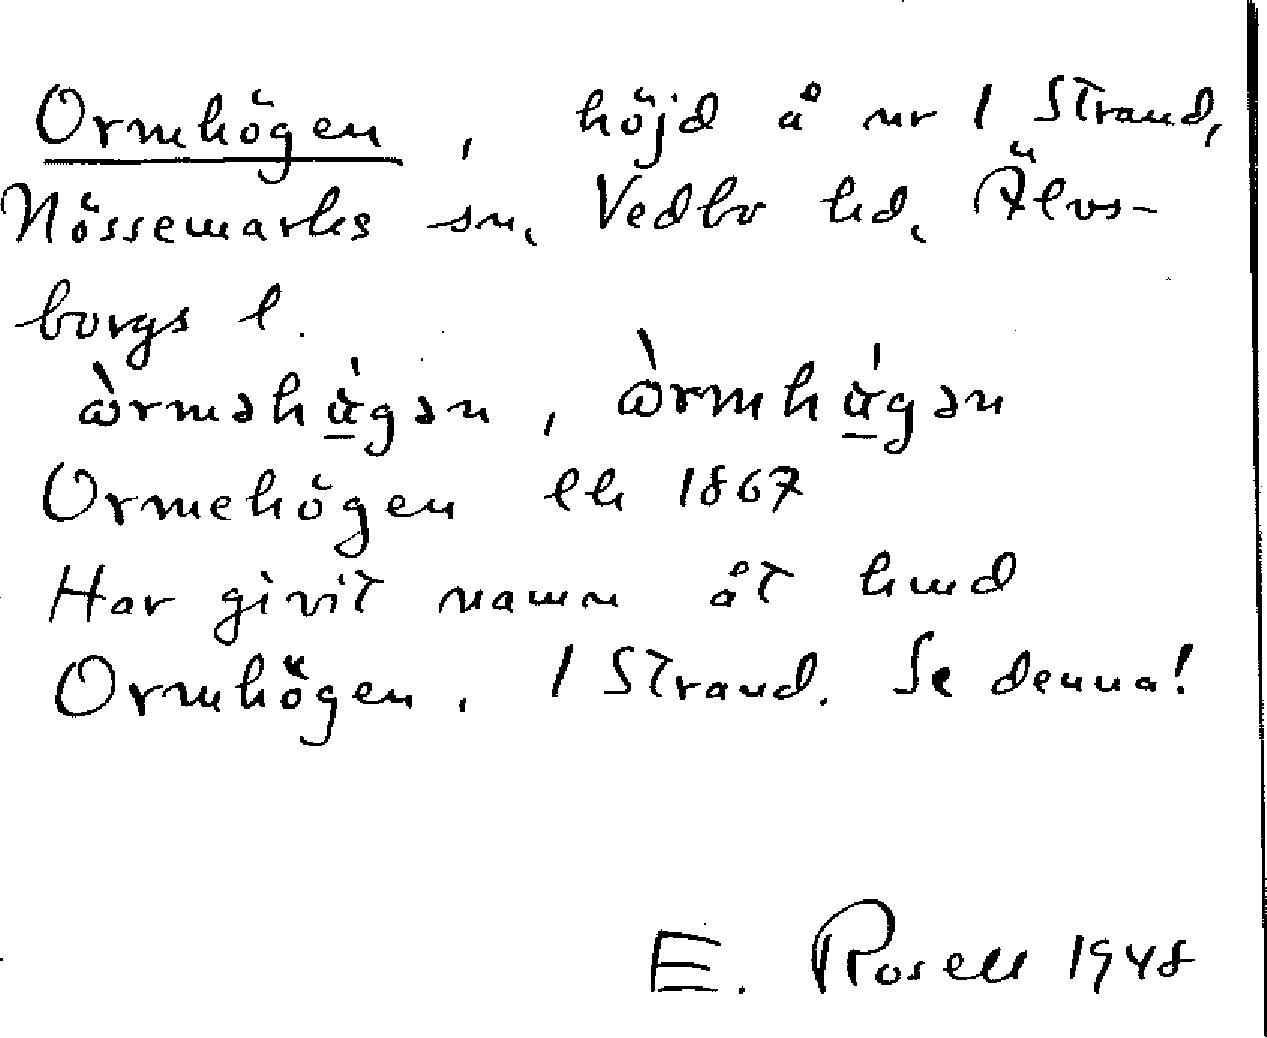 Ormhögen, höjd å nr 1 Strand,
Nössemarks sn, Vedbo hd, Älvs-
borgs l.
ὼrməhὰ̠gən, ὼrmhὰ̠gən
Ormehögen lh 1867
Har givit namn åt hmd
Ormhögen, 1 Strand. Se denna!
E. Rosell 1948